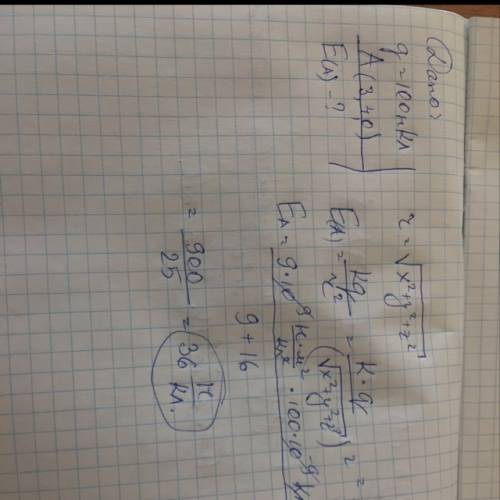 Дано:
q = 100 нКл
A (3,4,0)
E(A) - ?
r = √x²+y²+z²
E(A) = kq/r² = k·q/(√x²+y²+z²)² =
E_A = 9·10⁹ Н·м²/Кл² · 100·10⁻⁹
9 + 16
= 900/25 = 36 Н/Кл.